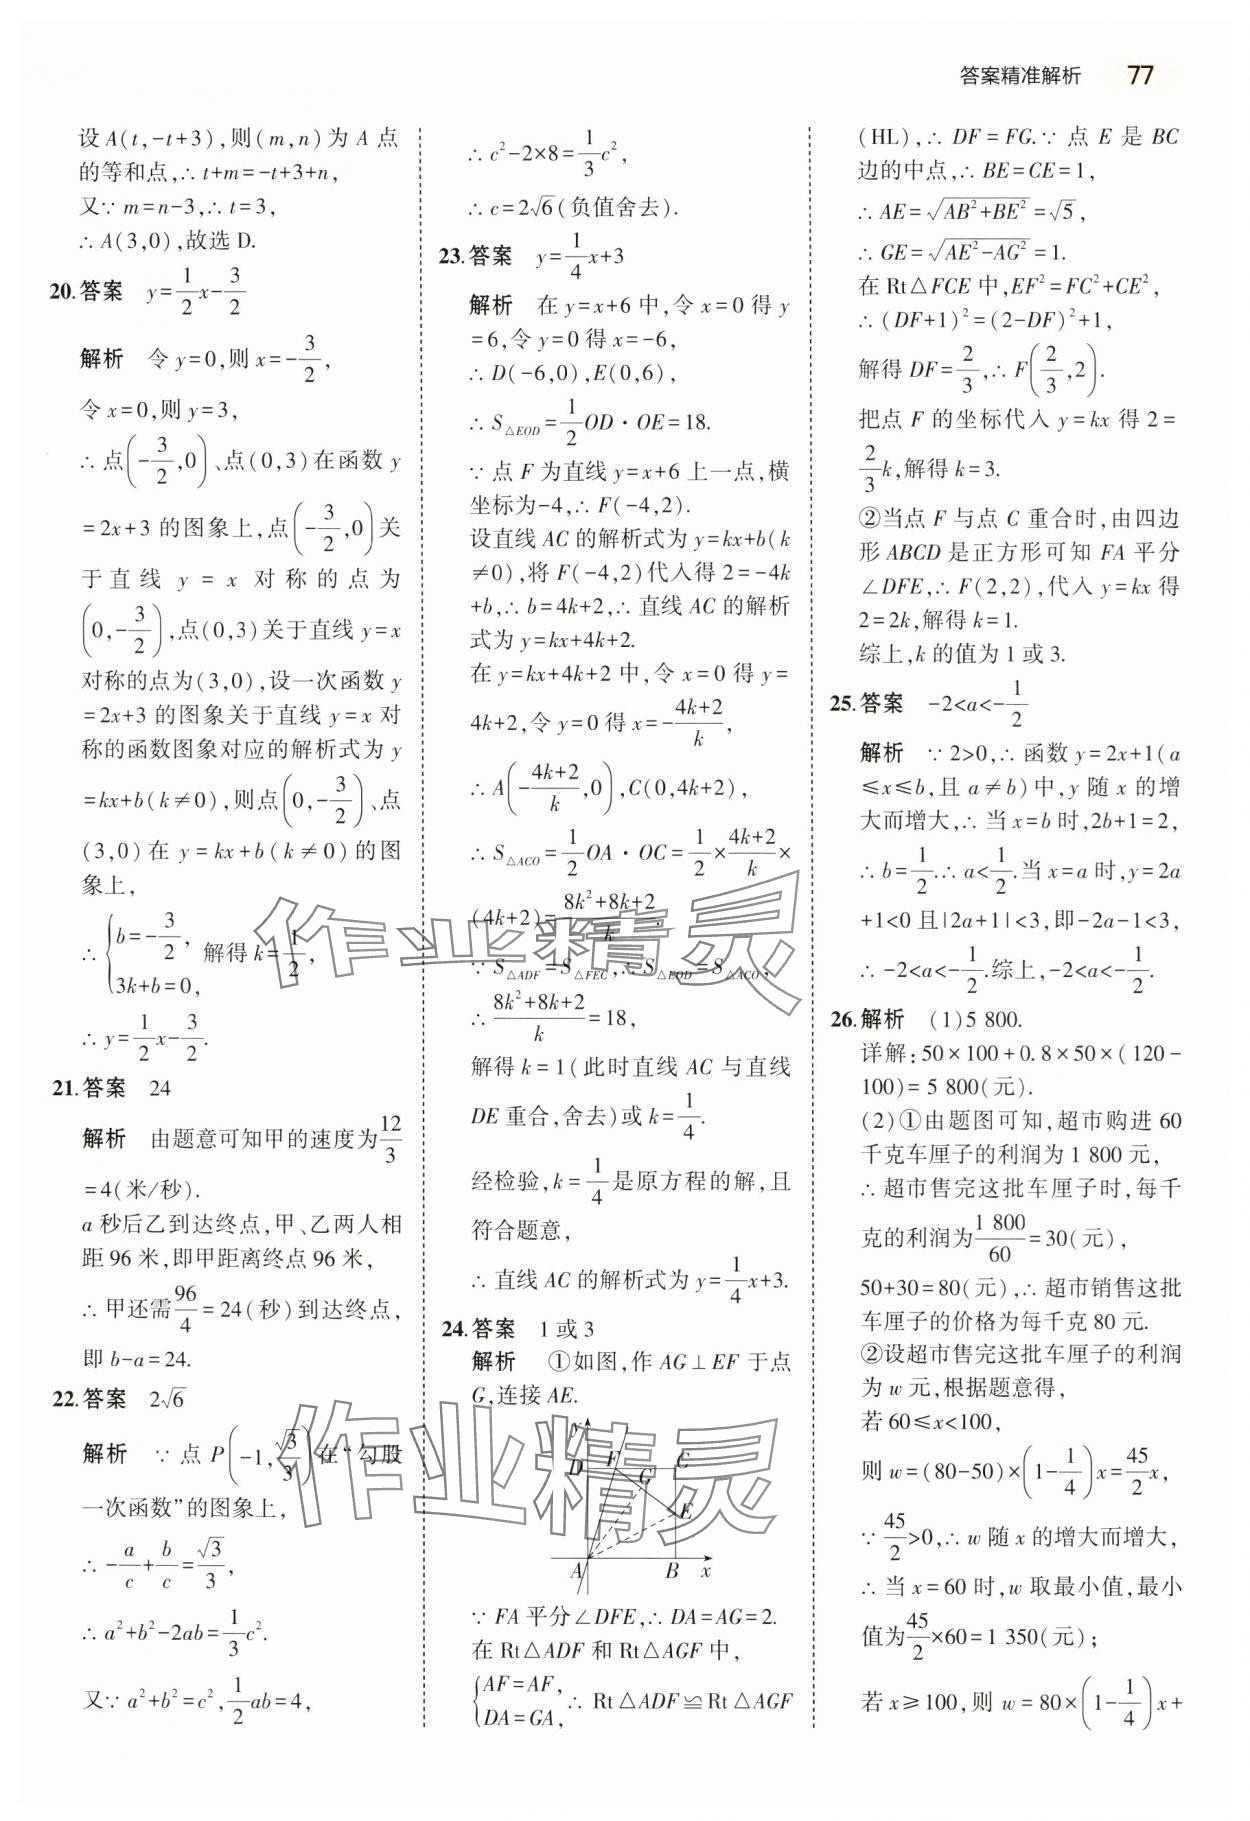 答案精准解析 77
设 A(t,-t+3),则(m,n)为 A 点
的等和点,∴t+m=-t+3+n,
又∵m=n-3,∴t=3,
∴A(3,0),故选 D.
20.答案 y=1/2x-3/2
解析 令 y=0,则 x=-3/2,
令 x=0,则 y=3,
∴点(-3/2,0)、点(0,3)在函数 y
=2x+3 的图象上,点(-3/2,0)关
于直线 y=x 对称的点为
(0,-3/2),点(0,3)关于直线 y=x
对称的点为(3,0),设一次函数 y
=2x+3 的图象关于直线 y=x 对
称的函数图象对应的解析式为 y
=kx+b(k≠0),则点(0,-3/2)、点
(3,0)在 y=kx+b(k≠0)的图
象上,
∴{b=-3/2, 3k+b=0, 解得 k=1/2,
∴y=1/2x-3/2.
21.答案 24
解析 由题意可知甲的速度为12/3
=4(米/秒).
a 秒后乙到达终点,甲、乙两人相
距 96 米,即甲距离终点 96 米,
∴甲还需96/4=24(秒)到达终点,
即 b-a=24.
22.答案 2√6
解析 ∵点 P(-1,√3/3)在“勾股
一次函数”的图象上,
∴-a/c+b/c=√3/3,
∴a²+b²-2ab=1/3c².
又∵a²+b²=c²,1/2ab=4,
∴c²-2×8=1/3c²,
∴c=2√6(负值舍去).
23.答案 y=1/4x+3
解析 在 y=x+6 中,令 x=0 得 y
=6,令 y=0 得 x=-6,
∴D(-6,0),E(0,6),
∴S△EOD=1/2OD·OE=18.
∵点 F 为直线 y=x+6 上一点,横
坐标为-4,∴F(-4,2).
设直线 AC 的解析式为 y=kx+b(k
≠0),将 F(-4,2)代入得 2=-4k
+b,∴b=4k+2,∴直线 AC 的解析
式为 y=kx+4k+2.
在 y=kx+4k+2 中,令 x=0 得 y=
4k+2,令 y=0 得 x=-(4k+2)/k,
∴A(-(4k+2)/k,0),C(0,4k+2),
∴S△ACO=1/2OA·OC=1/2×(4k+2)/k×
(4k+2)=(8k²+8k+2)/k.
∵S△ADF=S△FEC,∴S△EOD=S△ACO,
∴(8k²+8k+2)/k=18,
解得 k=1(此时直线 AC 与直线
DE 重合,舍去)或 k=1/4.
经检验,k=1/4是原方程的解,且
符合题意,
∴直线 AC 的解析式为 y=1/4x+3.
24.答案 1 或 3
解析 ①如图,作 AG⊥EF 于点
G,连接 AE.
y
D F C
G
E
A B x
∵FA 平分∠DFE,∴DA=AG=2.
在 Rt△ADF 和 Rt△AGF 中,
{AF=AF, DA=GA, ∴Rt△ADF≌Rt△AGF
(HL),∴DF=FG.∵点 E 是 BC
边的中点,∴BE=CE=1,
∴AE=√(AB²+BE²)=√5,
∴GE=√(AE²-AG²)=1.
在 Rt△FCE 中,EF²=FC²+CE²,
∴(DF+1)²=(2-DF)²+1,
解得 DF=2/3,∴F(2/3,2).
把点 F 的坐标代入 y=kx 得 2=
2/3k,解得 k=3.
②当点 F 与点 C 重合时,由四边
形 ABCD 是正方形可知 FA 平分
∠DFE,∴F(2,2),代入 y=kx 得
2=2k,解得 k=1.
综上,k 的值为 1 或 3.
25.答案 -2<a<-1/2
解析 ∵2>0,∴函数 y=2x+1(a
≤x≤b,且 a≠b)中,y 随 x 的增
大而增大,∴当 x=b 时,2b+1=2,
∴b=1/2.∴a<1/2.当 x=a 时,y=2a
+1<0 且|2a+1|<3,即-2a-1<3,
∴-2<a<-1/2.综上,-2<a<-1/2.
26.解析 (1)5 800.
详解:50×100+0.8×50×(120-
100)=5 800(元).
(2)①由题图可知,超市购进 60
千克车厘子的利润为 1 800 元,
∴超市售完这批车厘子时,每千
克的利润为1 800/60=30(元),
50+30=80(元),∴超市销售这批
车厘子的价格为每千克 80 元.
②设超市售完这批车厘子的利润
为 w 元,根据题意得,
若 60≤x<100,
则 w=(80-50)×(1-1/4)x=45/2x,
∵45/2>0,∴w 随 x 的增大而增大,
∴当 x=60 时,w 取最小值,最小
值为45/2×60=1 350(元);
若 x≥100,则 w=80×(1-1/4)x+
作业精灵
作业精灵